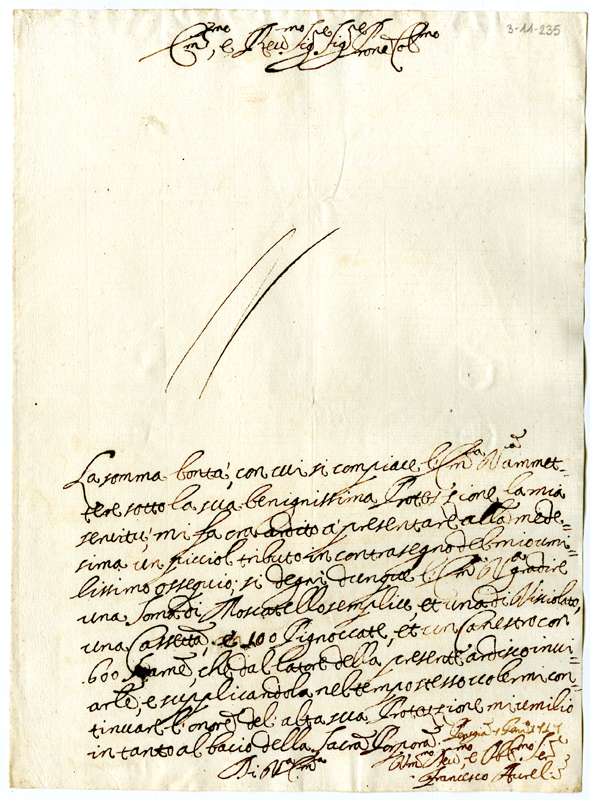 3-11-235
Em.mo, e Reu.mo Sig.re Sig.re Prone Col.mo
La somma bontà, con cui si compiace l'Em.a V.a ammet=
tere sotto la sua benignissima Protezzione la mia
seruitù, mi fa ora ardito a presentare alla mede=
sima un picciol tributo in contrasegno del mio umi=
lissimo ossequio; si degni dunque l'Em.a V.a gradire
una Soma di Moscatello semplice, et una di Visciolato,
una Cassetta, 100 Pignoccate, et un Canestro con
600 che dal latore della presente ardisco inui=
arle, e supplicandola nel tempo stesso uolermi con=
tinuare l'onore del alta sua Protezzione mi umilio
intanto al bacio della Sacra Porpora.
Di V.a Em.a
Um.mo Deu.mo, e Obl.mo Se.re
Francesco Aureli